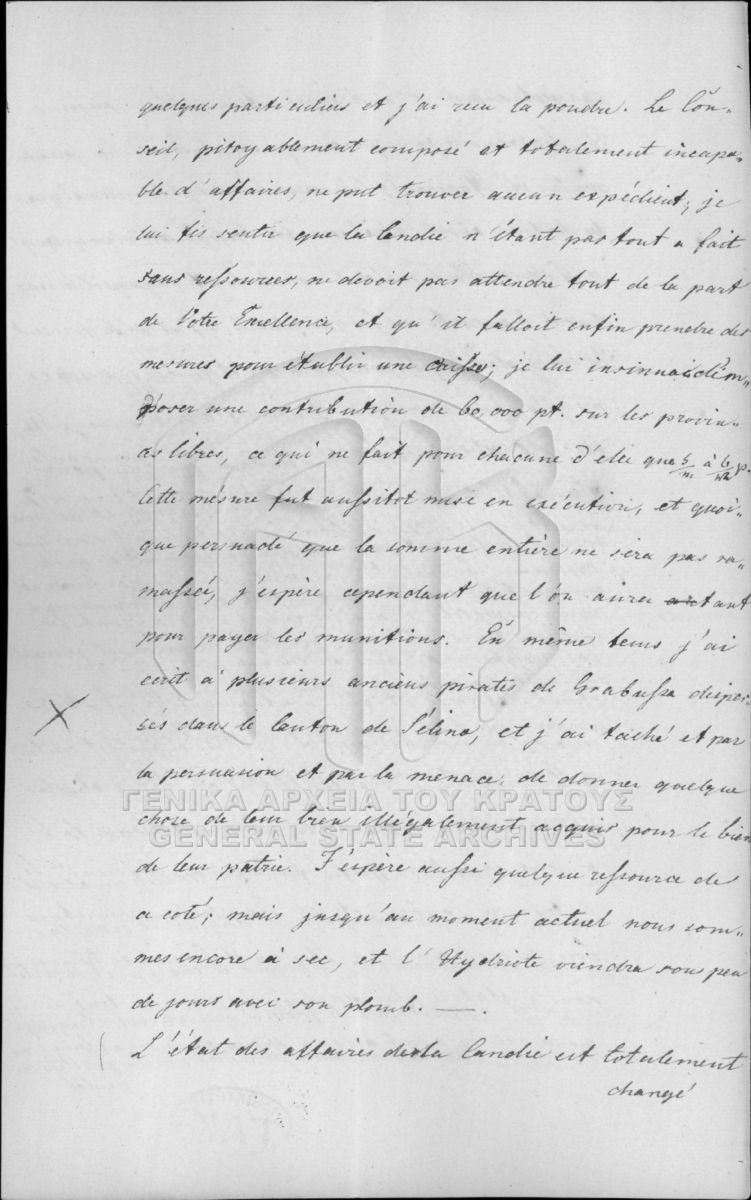 quelques particuliers et j'ai reçu la poudre. Le Con„
seil, pitoyablement composé et totalement incapa„
ble d'affaires, ne put trouver aucun expédient; je
lui fis sentir que la Candie n'étant pas tout a fait
sans ressources, ne devoit pas attendre tout de la part
de Votre Excellence, et qu'il falloit enfin prendre des
mesures pour établir une caisse; je lui insinuai d'im„
poser une contribution de 60,000 pt. sur les provin„
ces libres, ce qui ne fait pour chacune d'elle que 5/m à 6/m p.
Cette mésure fut aussitot mise en exécution, et quoi„
que persuadé que la somme entière ne sera pas ra„
massée, j'espère cependant que l'on aura autant
pour payer les munitions. En même tems j'ai
écrit à plusieurs anciens pirates de Grabussa disper„
sés dans le Canton de Sélino, et j'ai taché et par
la persuasion et par la menace, de donner quelque
chose de leur bien illégalement acquis pour le bien
de leur patrie. J'éspère aussi quelque ressource de
ce coté; mais jusqu'au moment actuel nous som„
mes encore à sec, et l'Hydriote viendra sous peu
de jours avec son plomb. —.
ΓΕΝΙΚΑ ΑΡΧΕΙΑ ΤΟΥ ΚΡΑΤΟΥΣ
GENERAL STATE ARCHIVES
L'état des affaires de la Candie est totalement
changé